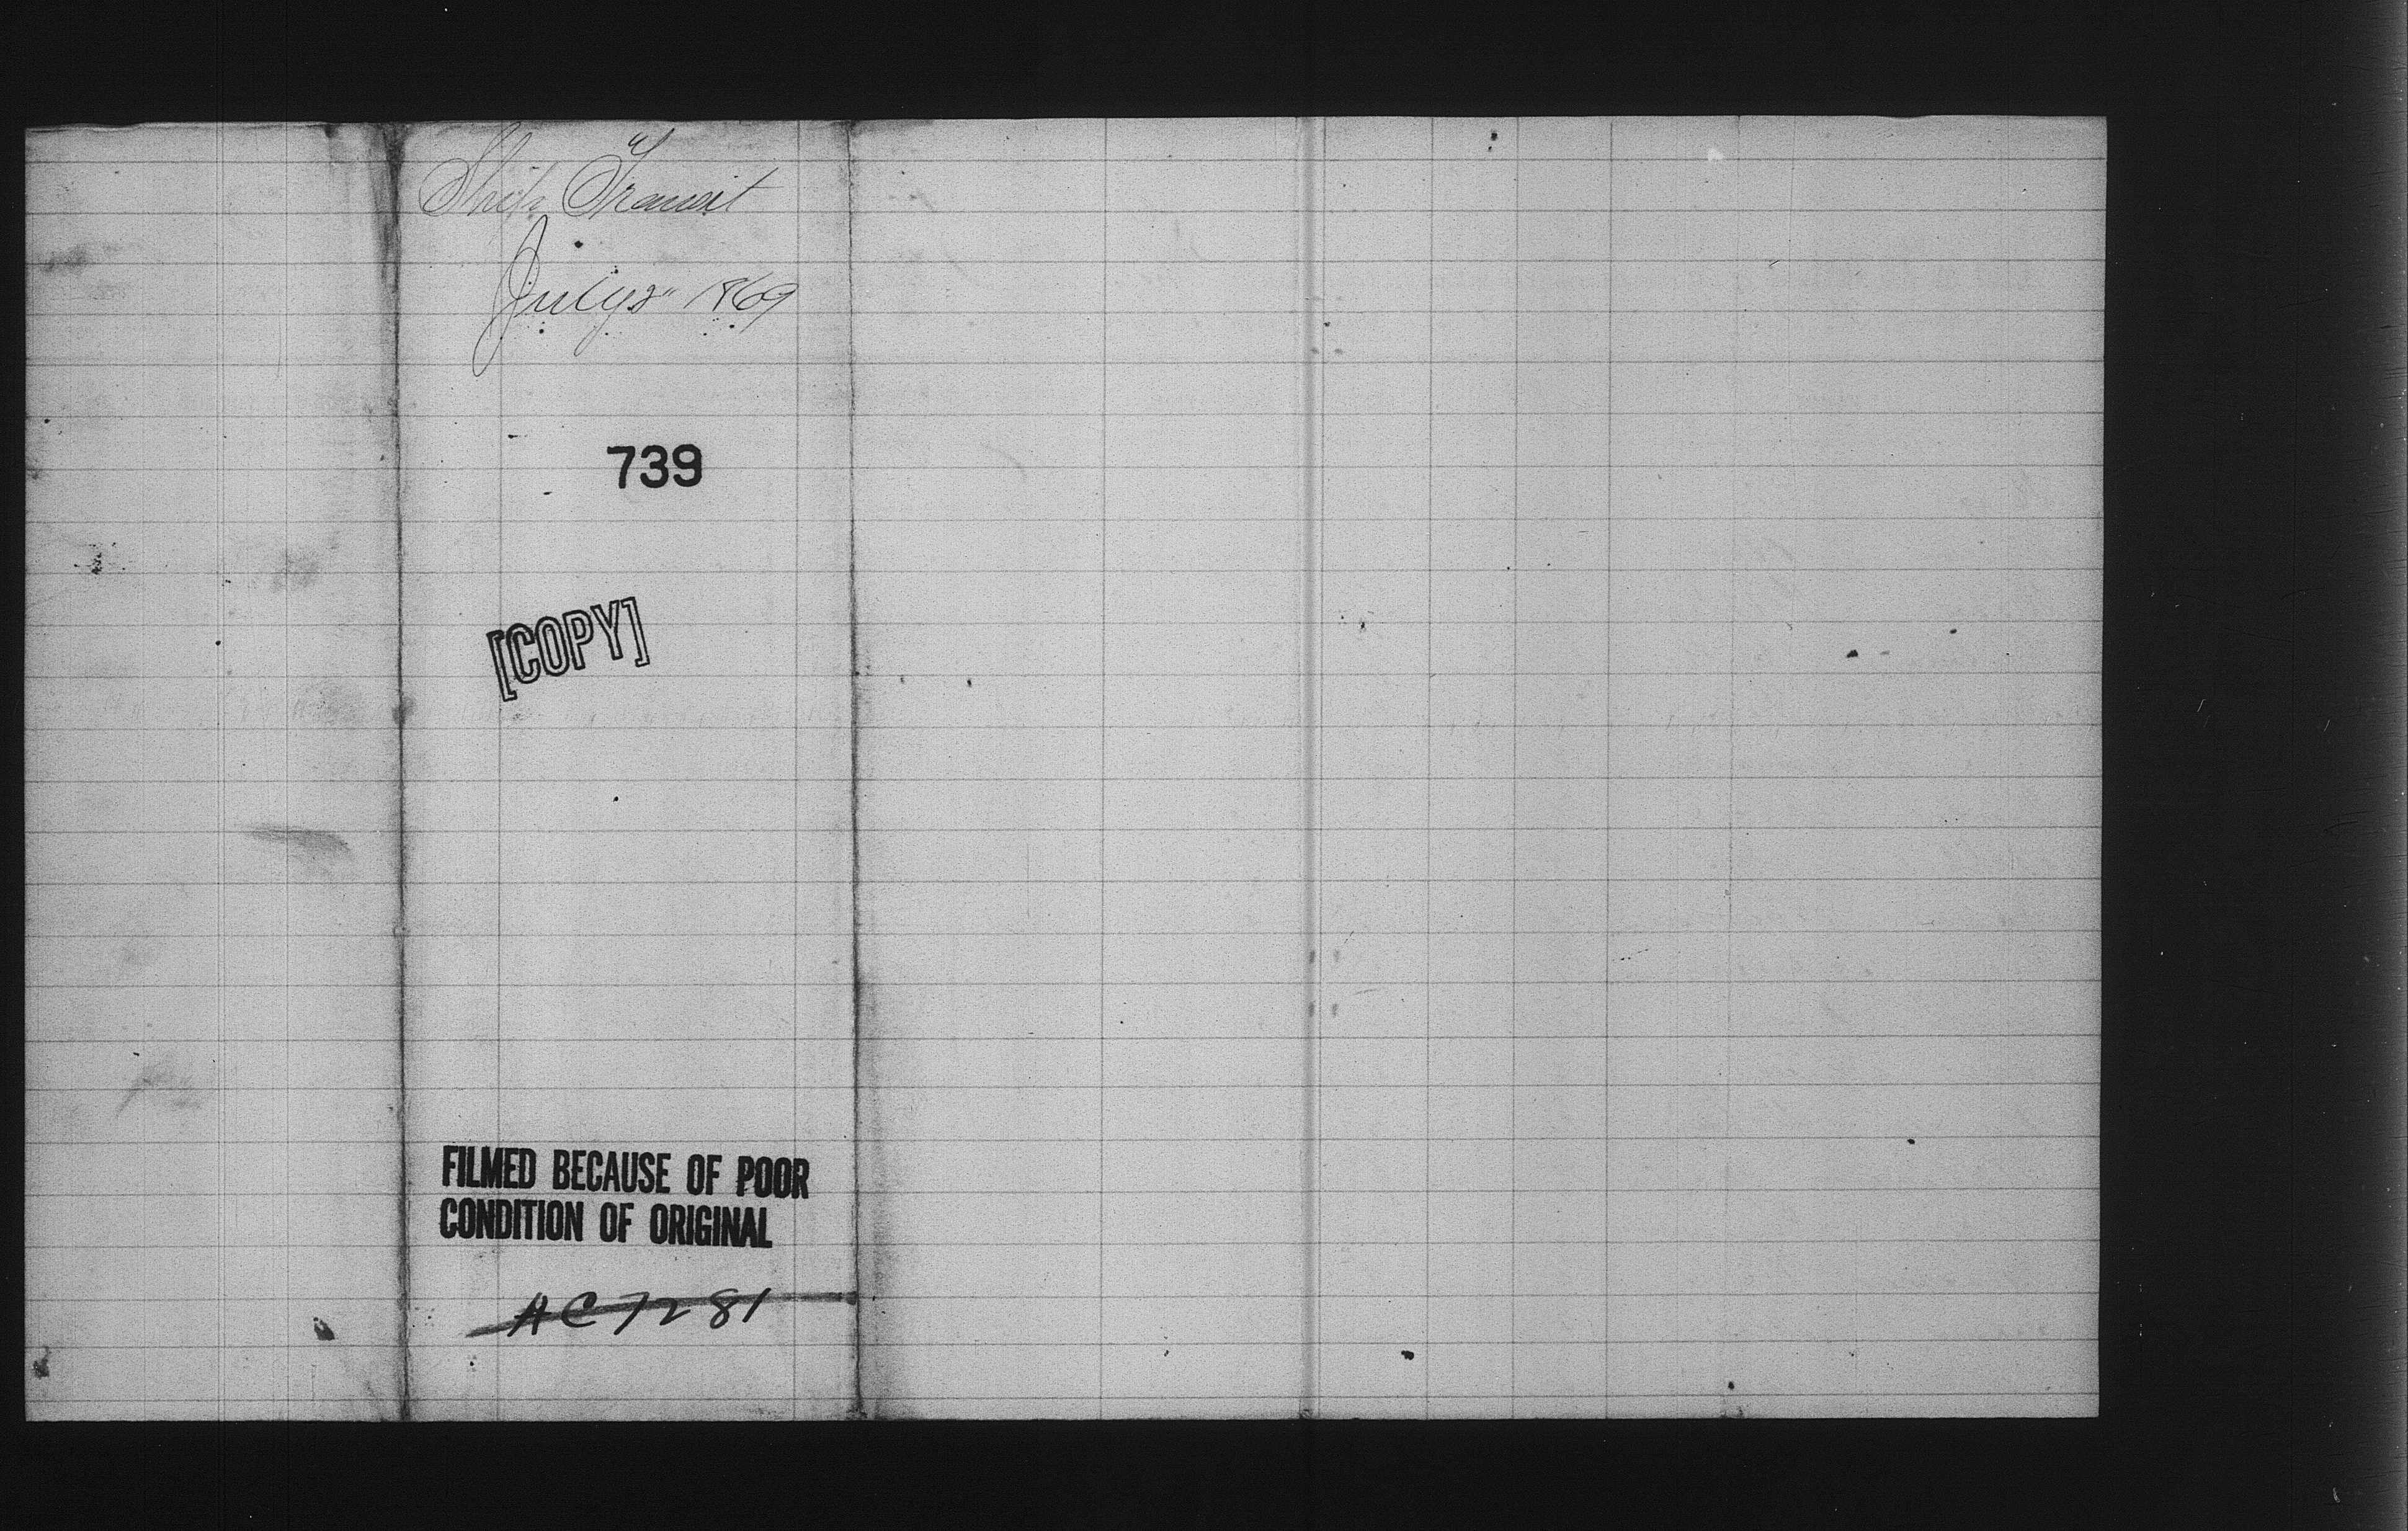 Ship Transit
July 2" 1869
739
[COPY]
FILMED BECAUSE OF POOR
CONDITION OF ORIGINAL
AC7281